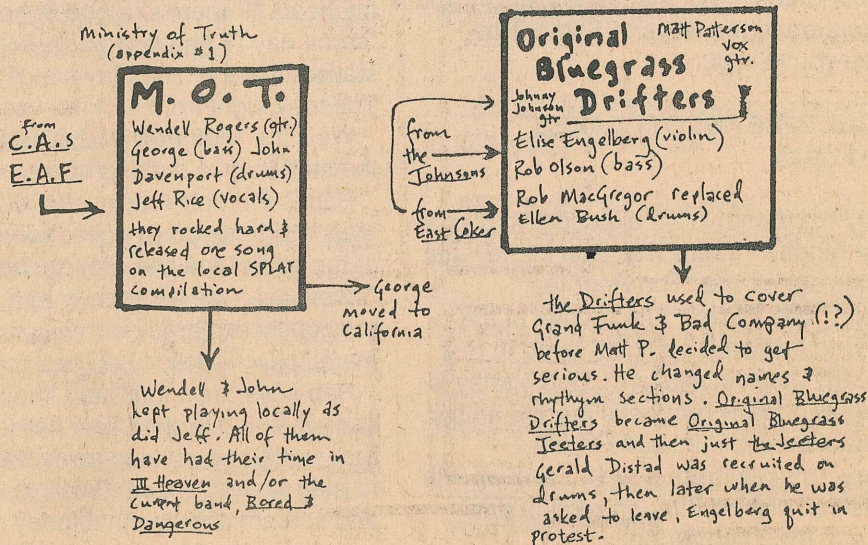 Ministry of Truth
(appendix #1)
M. O. T.
Wendell Rogers (gtr.)
George (bass) John
Davenport (drums)
Jeff Rice (vocals)
they rocked hard &
released one song
on the local SPLAT
compilation
from
C.A.S
E.A.F
George
moved to
California
Wendell & John
kept playing locally as
did Jeff. All of them
have had their time in
III Heaven and/or the
current band, Bored &
Dangerous
Original
Bluegrass
Drifters
Matt Patterson
vox
gtr.
Johnny
Johnson
gtr
Elise Engelberg (violin)
Rob Olson (bass)
Rob MacGregor replaced
Ellen Bush (drums)
from
the
Johnsons
from
East Coker
the Drifters used to cover
Grand Funk & Bad Company (!?)
before Matt P. decided to get
serious. He changed names &
rhythym sections. Original Bluegrass
Drifters became Original Bluegrass
Jeeters and then just the Jeeters
Gerald Distad was recruited on
drums, then later when he was
asked to leave, Engelberg quit in
protest.